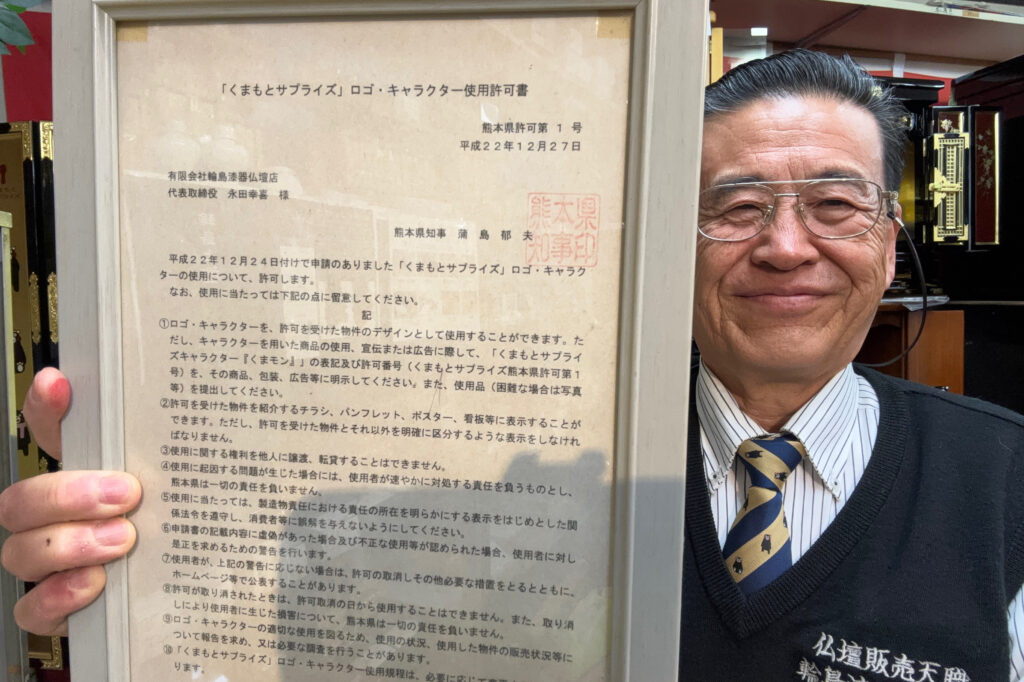 「くまもとサプライズ」ロゴ・キャラクター使用許可書
熊本県許可第 1 号
平成22年12月27日
有限会社輪島漆器仏壇店
代表取締役 永田幸喜 様
熊本県知事 蒲 島 郁 夫
熊本県
知事印
平成22年12月24日付けで申請のありました「くまもとサプライズ」ロゴ・キャラク
ターの使用について、許可します。
なお、使用に当たっては下記の点に留意してください。
記
①ロゴ・キャラクターを、許可を受けた物件のデザインとして使用することができます。た
だし、キャラクターを用いた商品の使用、宣伝または広告に際して、「くまもとサプライ
ズキャラクター『くまモン』」の表記及び許可番号(くまもとサプライズ熊本県許可第1
号)を、その商品、包装、広告等に明示してください。また、使用品(困難な場合は写真
等)を提出してください。
②許可を受けた物件を紹介するチラシ、パンフレット、ポスター、看板等に表示することが
できます。ただし、許可を受けた物件とそれ以外を明確に区分するような表示をしなけれ
ばなりません。
③使用に関する権利を他人に譲渡、転貸することはできません。
④使用に起因する問題が生じた場合には、使用者が速やかに対処する責任を負うものとし、
熊本県は一切の責任を負いません。
⑤使用に当たっては、製造物責任における責任の所在を明らかにする表示をはじめとした関
係法令を遵守し、消費者等に誤解を与えないようにしてください。
⑥申請書の記載内容に虚偽があった場合及び不正な使用等が認められた場合、使用者に対し
是正を求めるための警告を行います。
⑦使用者が、上記の警告に応じない場合は、許可の取消しその他必要な措置をとるとともに、
ホームページ等で公表することがあります。
⑧許可が取り消されたときは、許可取消の日から使用することはできません。また、取り消
しにより使用者に生じた損害について、熊本県は一切の責任を負いません。
⑨ロゴ・キャラクターの適切な使用を図るため、使用の状況、使用した物件の販売状況等に
ついて報告を求め、又は必要な調査を行うことがあります。
⑩「くまもとサプライズ」ロゴ・キャラクター使用規程は、必要に応じて
ります。
仏壇販売天職
輪島